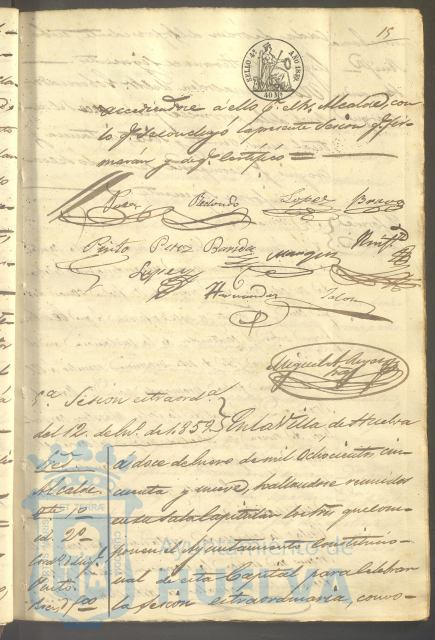 15
SELLO 4º AÑO 1859
40 Ms
accediendose a ello p. el Sr. Alcalde, con
lo q. se concluyó la presente Sesion q. fir-
marán y de q. certifico =
Redondo Lopez Bravo
Pinto Perez Barreda Marquez
Lopez
Hernandez
Miguel
5ª Sesion extraordª
del 12. de En.º de 1.859
En la Villa de Huelva
Alcalde
a doce de Enero de mil Ochocientos cin-
cuenta y nueve, hallandose reunidos
Tte. 1º
en su Sala Capitular los Sres. que com-
id. 2º
ponen el Ayuntamiento Constitucio-
nal de esta Capital para celebrar
Pinto
la Sesion extraordinaria, convo-
Ayuntamiento de
HUELVA